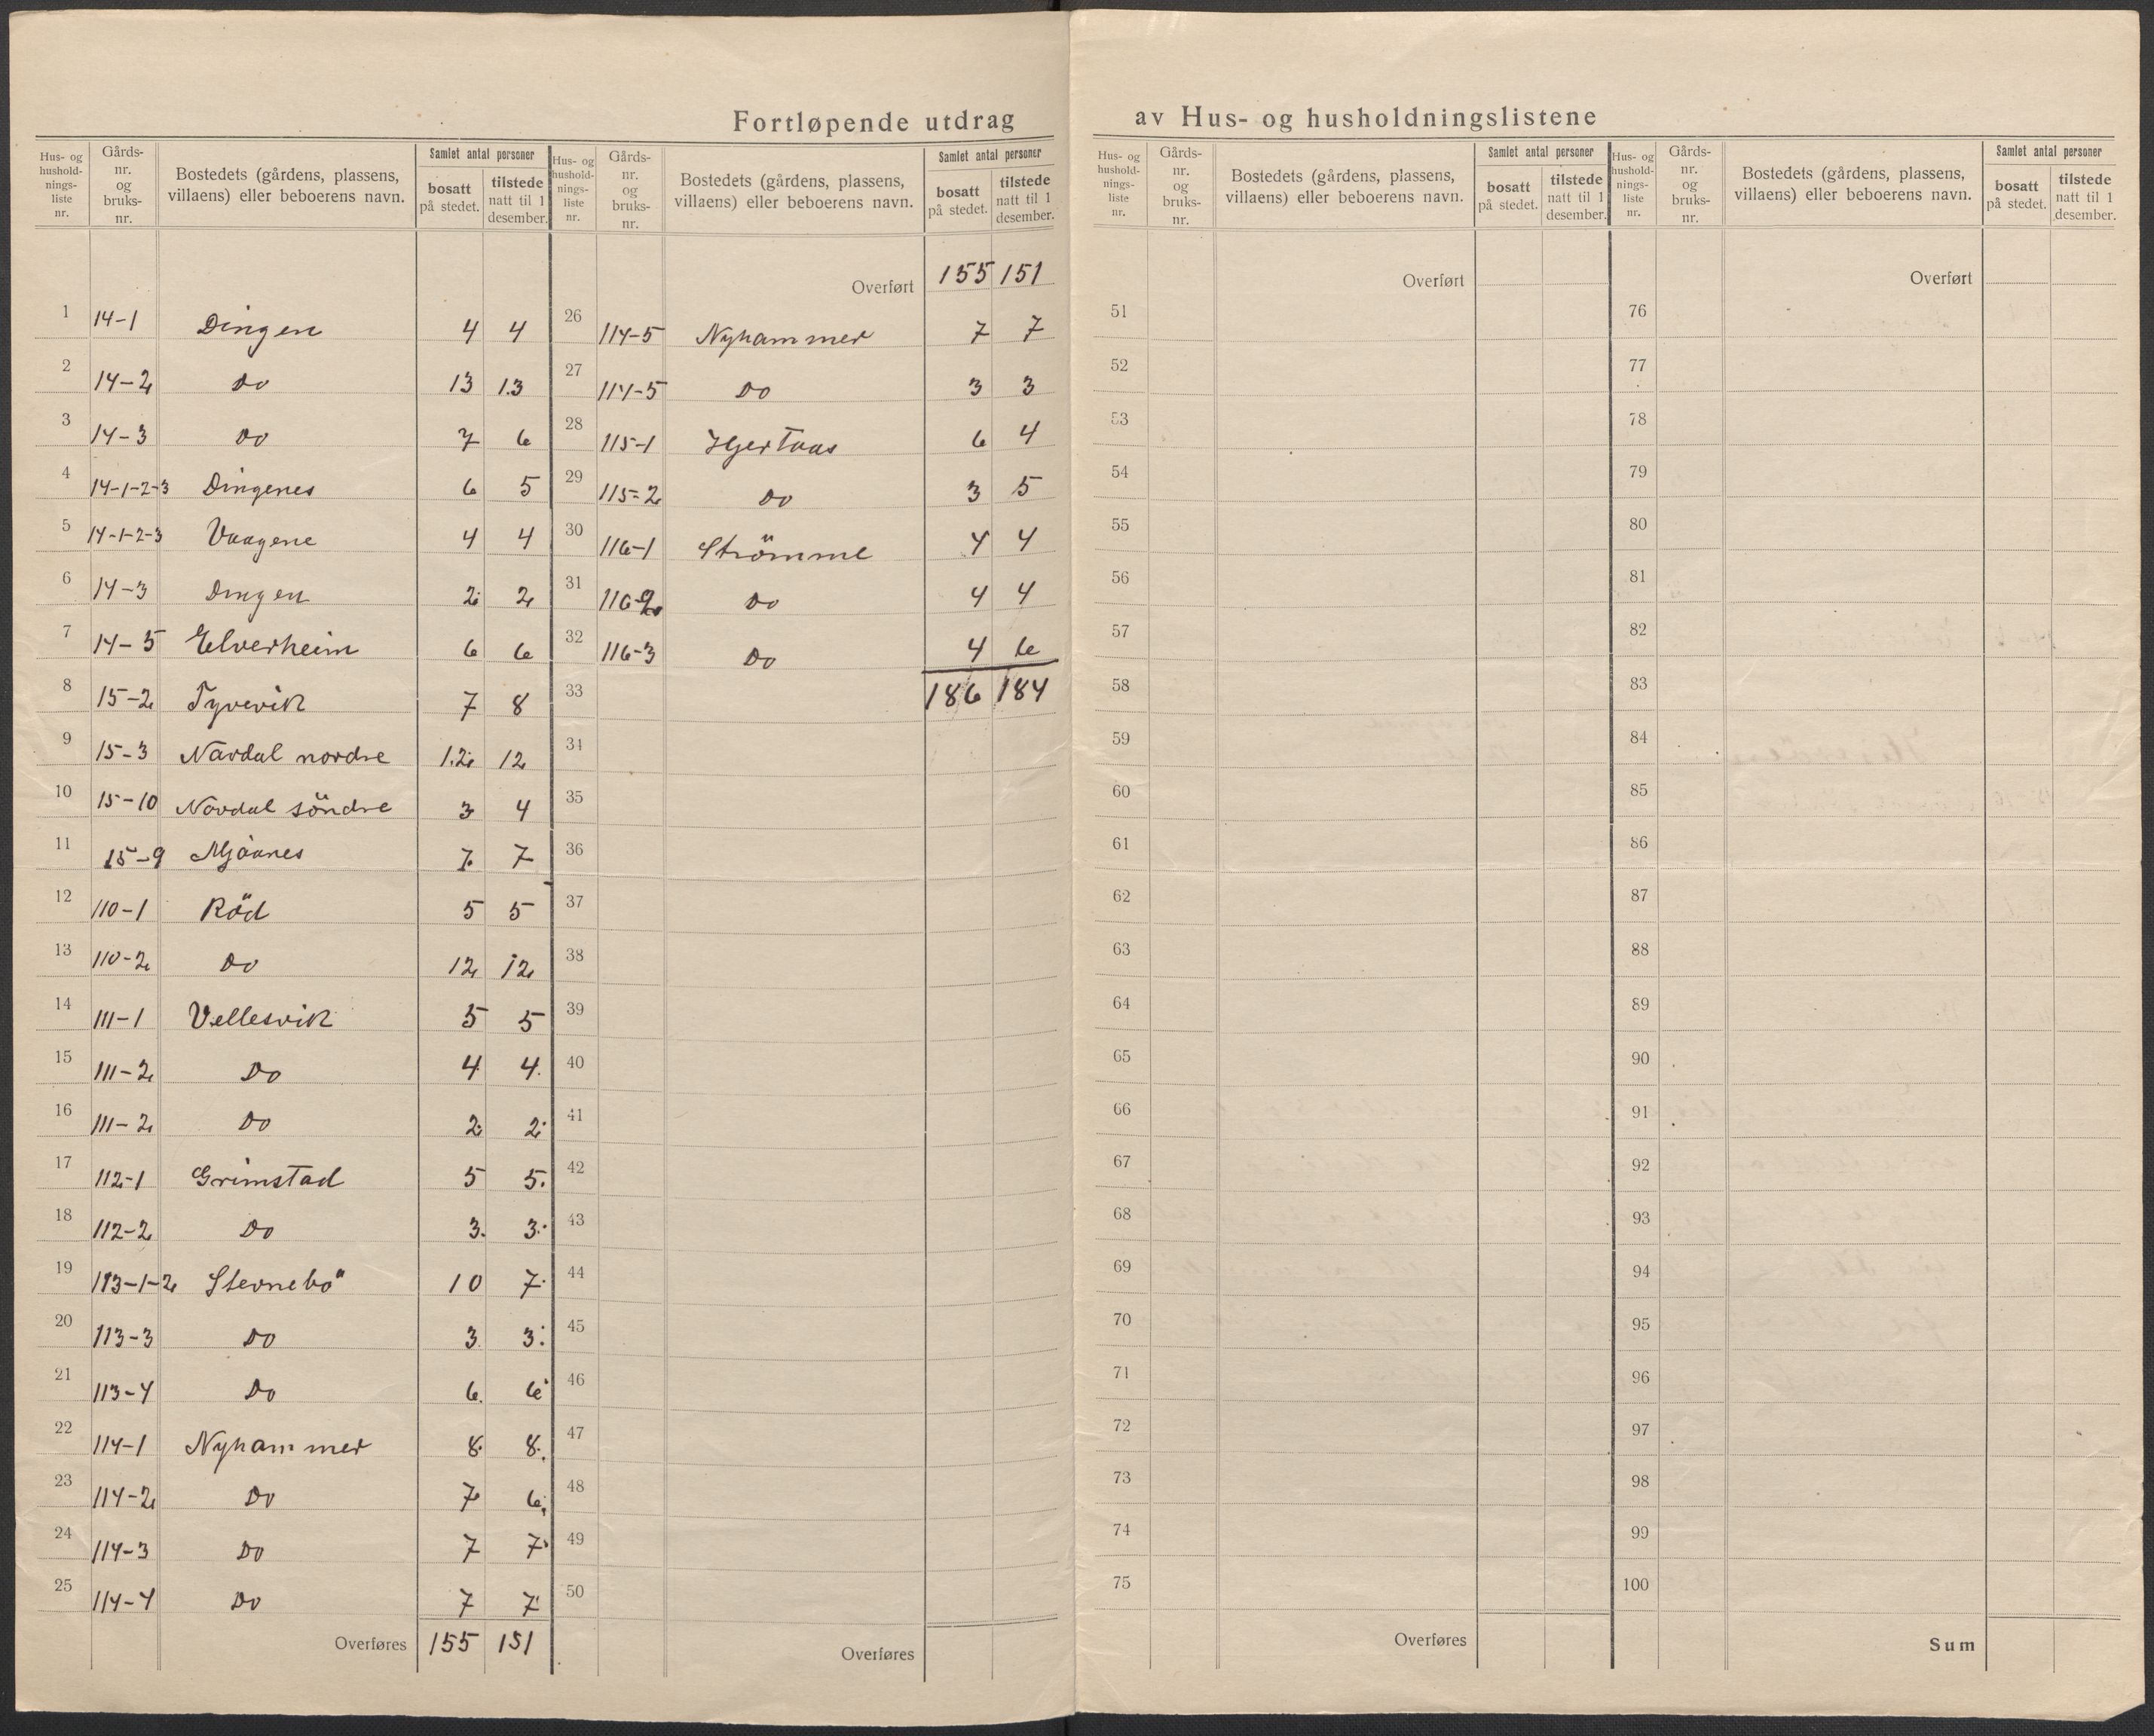 Fortløpende utdrag av Hus- og husholdningslistene
Hus- og hushold-nings-liste nr. Gårds-nr. og bruks-nr. Bostedets (gårdens, plassens, villaens) eller beboerens navn. Samlet antal personer bosatt på stedet. tilstede natt til 1 desember.
1 14-1 Dingen 4 4
2 14-2 Do 13 13
3 14-3 Do 7 6
4 14-1-2-3 Dingenes 6 5
5 14-1-2-3 Vaagene 4 4
6 14-3 Dingen 2 2
7 14-5 Elverheim 6 6
8 15-2 Tyvevik 7 8
9 15-3 Navdal nordre 12 12
10 15-10 Navdal söndre 3 4
11 15-9 Mjaanes 7 7
12 110-1 Röd 5 5
13 110-2 Do 12 12
14 111-1 Vellesvik 5 5
15 111-2 Do 4 4
16 111-2 Do 2 2
17 112-1 Grimstad 5 5
18 112-2 Do 3 3
19 113-1-2 Stevnebö 10 7
20 113-3 Do 3 3
21 113-4 Do 6 6
22 114-1 Nyhammer 8 8
23 114-2 Do 7 6
24 114-3 Do 7 7
25 114-4 Do 7 7
Overføres 155 151
Hus- og hushold-nings-liste nr. Gårds-nr. og bruks-nr. Bostedets (gårdens, plassens, villaens) eller beboerens navn. Samlet antal personer bosatt på stedet. tilstede natt til 1 desember.
Overført 155 151
26 114-5 Nyhammer 7 7
27 114-5 Do 3 3
28 115-1 Hjertaas 6 4
29 115-2 Do 3 5
30 116-1 Strömme 4 4
31 116-2 Do 4 4
32 116-3 Do 4 6
33 186 184
34
35
36
37
38
39
40
41
42
43
44
45
46
47
48
49
50
Overføres
Hus- og hushold-nings-liste nr. Gårds-nr. og bruks-nr. Bostedets (gårdens, plassens, villaens) eller beboerens navn. Samlet antal personer bosatt på stedet. tilstede natt til 1 desember.
Overført
51
52
53
54
55
56
57
58
59
60
61
62
63
64
65
66
67
68
69
70
71
72
73
74
75
Overføres
Hus- og hushold-nings-liste nr. Gårds-nr. og bruks-nr. Bostedets (gårdens, plassens, villaens) eller beboerens navn. Samlet antal personer bosatt på stedet. tilstede natt til 1 desember.
Overført
76
77
78
79
80
81
82
83
84
85
86
87
88
89
90
91
92
93
94
95
96
97
98
99
100
Sum